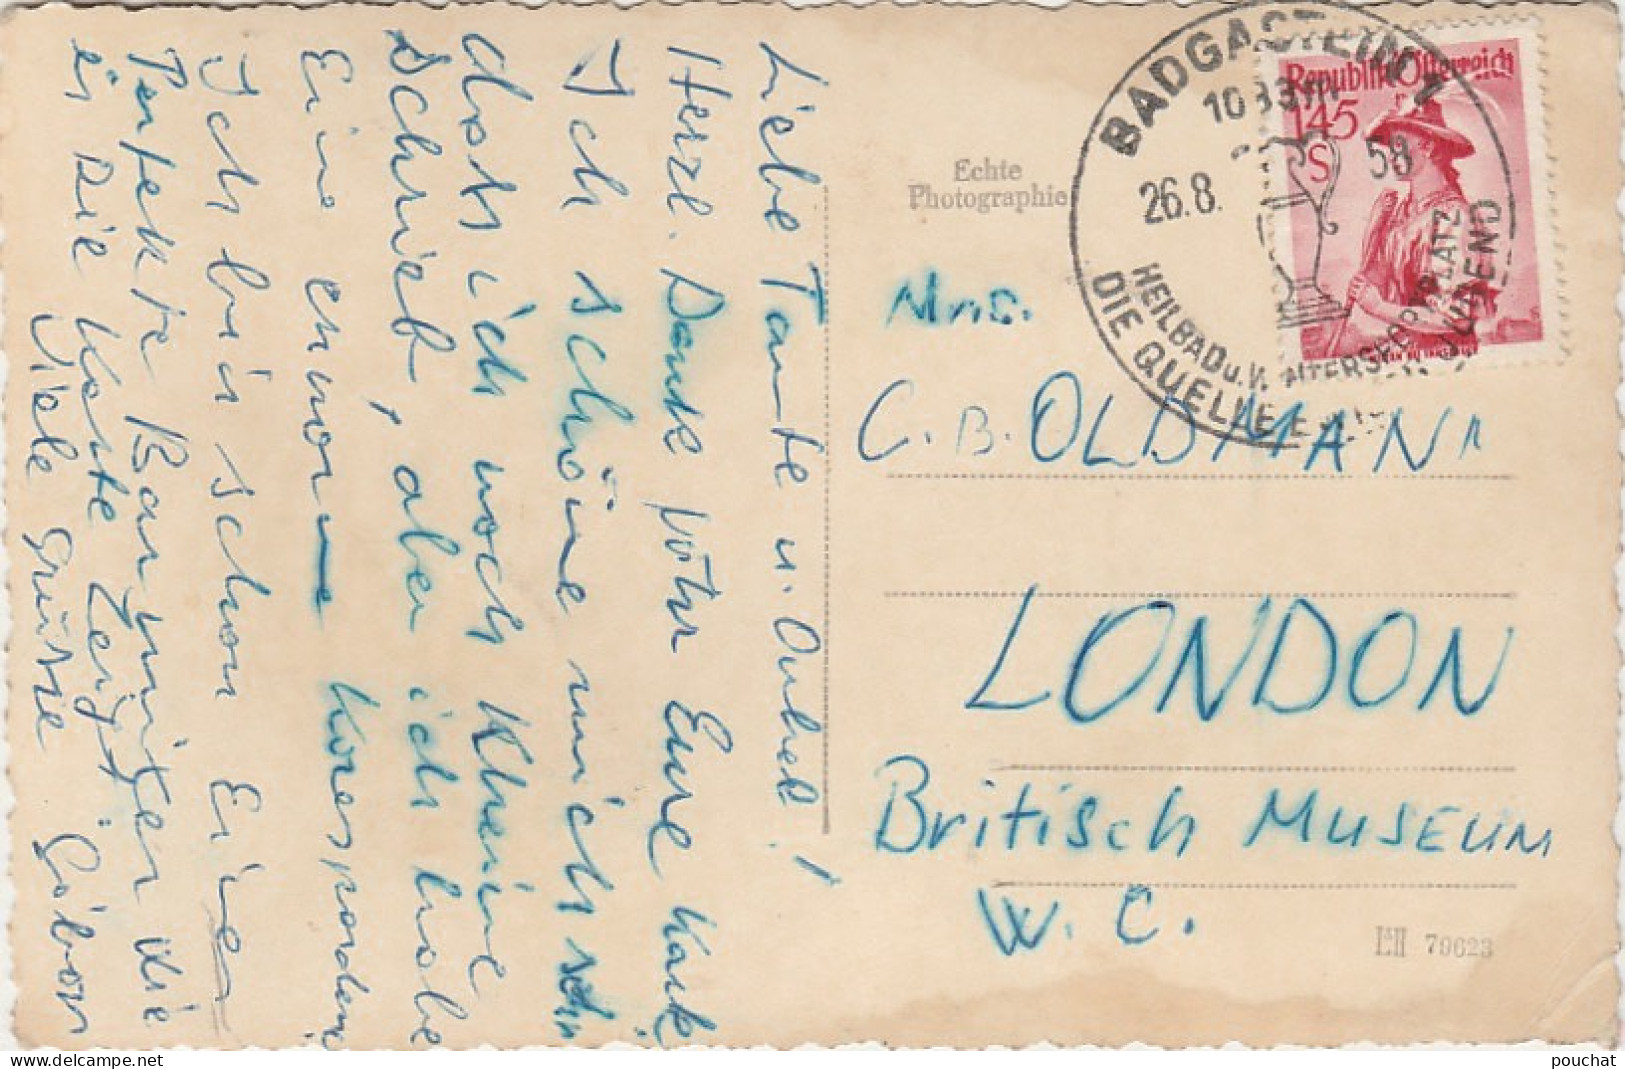 Liebe Tante u. Onkel!
Herzl. Dank für Eure Karte
Ich schäme mich sehr
dass ich noch Kleine
Schrieb, aber ich habe
Eine enorme Korespondenz
Ich bin schon Einer
Perfekte
es Die Karte Zeigt.
Viele Grüsse Gábor
Echte
Photographie
BADGASTEIN 1
26.8. 58
HEILBAD u. WINTERSPORTPLATZ
DIE QUELLE EWIGER JUGEND
Republik Österreich
1.45
S
Mrs.
C. B. OLDMAN
LONDON
Britisch MUSEUM
W. C.
79623
pouchat